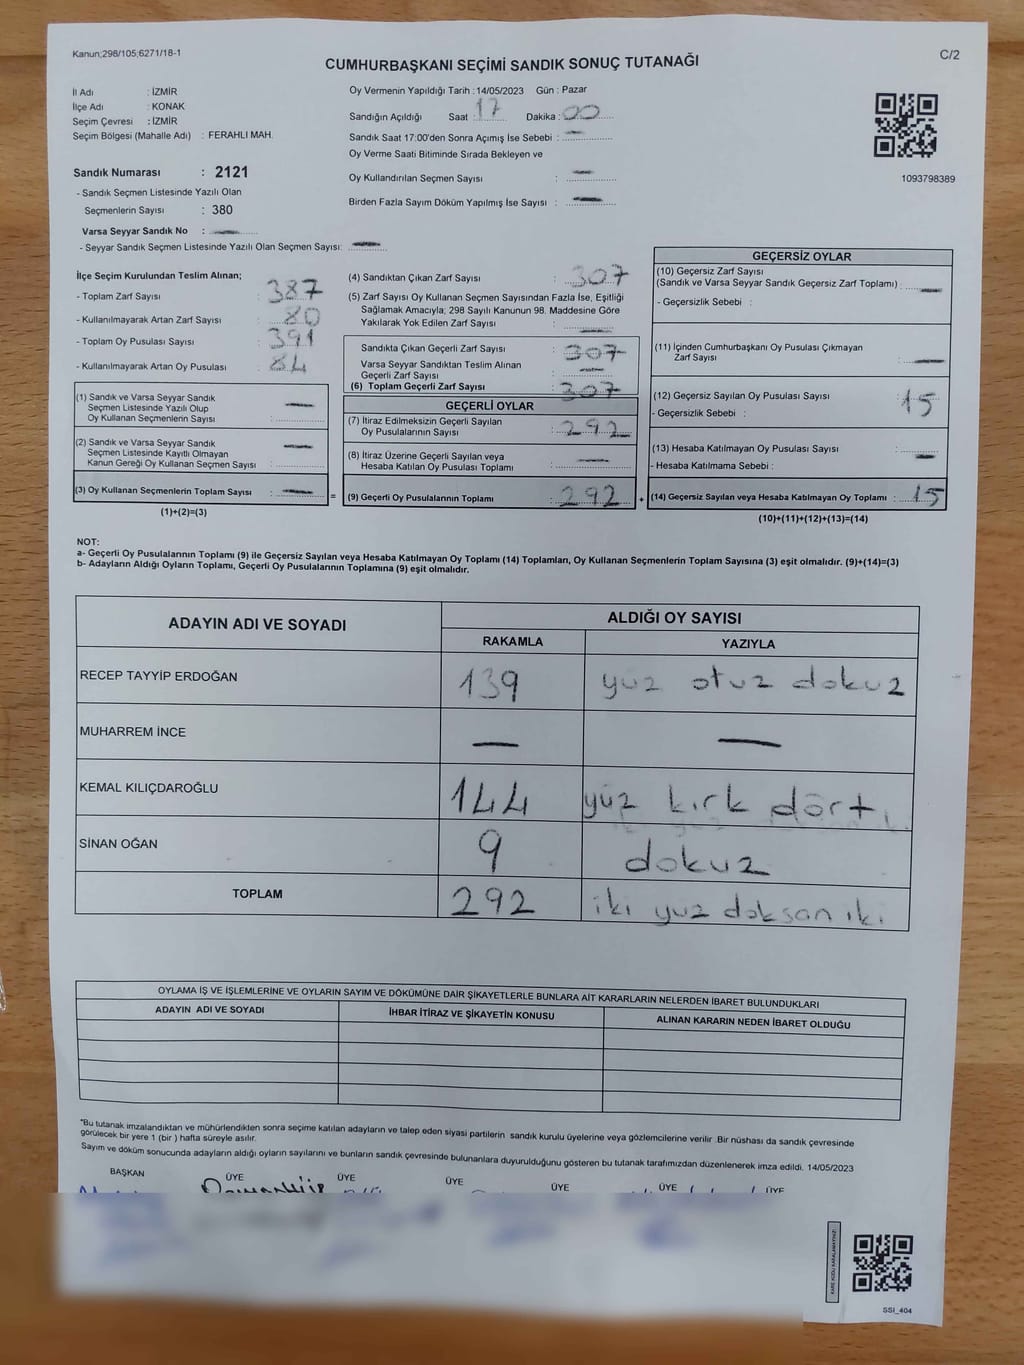 Kanun;298/105;6271/18-1
C/2
CUMHURBAŞKANI SEÇİMİ SANDIK SONUÇ TUTANAĞI
İl Adı : İZMİR
İlçe Adı : KONAK
Seçim Çevresi : İZMİR
Seçim Bölgesi (Mahalle Adı) : FERAHLI MAH.
Sandık Numarası : 2121
- Sandık Seçmen Listesinde Yazılı Olan
Seçmenlerin Sayısı : 380
Varsa Seyyar Sandık No : —
- Seyyar Sandık Seçmen Listesinde Yazılı Olan Seçmen Sayısı: —
Oy Vermenin Yapıldığı Tarih : 14/05/2023 Gün : Pazar
Sandığın Açıldığı Saat : 17 Dakika : 00
Sandık Saat 17:00'den Sonra Açımış İse Sebebi : —
Oy Verme Saati Bitiminde Sırada Bekleyen ve
Oy Kullandırılan Seçmen Sayısı : —
Birden Fazla Sayım Döküm Yapılmış İse Sayısı : —
1093798389
İlçe Seçim Kurulundan Teslim Alınan;
- Toplam Zarf Sayısı : 387
- Kullanılmayarak Artan Zarf Sayısı : 80
- Toplam Oy Pusulası Sayısı : 391
- Kullanılmayarak Artan Oy Pusulası : 84
(1) Sandık ve Varsa Seyyar Sandık
Seçmen Listesinde Yazılı Olup
Oy Kullanan Seçmenlerin Sayısı : —
(2) Sandık ve Varsa Seyyar Sandık
Seçmen Listesinde Kayıtlı Olmayan
Kanun Gereği Oy Kullanan Seçmen Sayısı : —
(3) Oy Kullanan Seçmenlerin Toplam Sayısı : — =
(1)+(2)=(3)
(4) Sandıktan Çıkan Zarf Sayısı : 307
(5) Zarf Sayısı Oy Kullanan Seçmen Sayısından Fazla İse, Eşitliği
Sağlamak Amacıyla; 298 Sayılı Kanunun 98. Maddesine Göre
Yakılarak Yok Edilen Zarf Sayısı : —
Sandıkta Çıkan Geçerli Zarf Sayısı : 307
Varsa Seyyar Sandıktan Teslim Alınan
Geçerli Zarf Sayısı : —
(6) Toplam Geçerli Zarf Sayısı : 307
GEÇERLİ OYLAR
(7) İtiraz Edilmeksizin Geçerli Sayılan
Oy Pusulalarının Sayısı : 292
(8) İtiraz Üzerine Geçerli Sayılan veya
Hesaba Katılan Oy Pusulası Toplamı : —
(9) Geçerli Oy Pusulalarının Toplamı : 292 +
GEÇERSİZ OYLAR
(10) Geçersiz Zarf Sayısı
(Sandık ve Varsa Seyyar Sandık Geçersiz Zarf Toplamı) : —
- Geçersizlik Sebebi :
(11) İçinden Cumhurbaşkanı Oy Pusulası Çıkmayan
Zarf Sayısı : —
(12) Geçersiz Sayılan Oy Pusulası Sayısı : 15
- Geçersizlik Sebebi :
(13) Hesaba Katılmayan Oy Pusulası Sayısı : —
- Hesaba Katılmama Sebebi :
(14) Geçersiz Sayılan veya Hesaba Katılmayan Oy Toplamı : 15
(10)+(11)+(12)+(13)=(14)
NOT:
a- Geçerli Oy Pusulalarının Toplamı (9) ile Geçersiz Sayılan veya Hesaba Katılmayan Oy Toplamı (14) Toplamları, Oy Kullanan Seçmenlerin Toplam Sayısına (3) eşit olmalıdır. (9)+(14)=(3)
b- Adayların Aldığı Oyların Toplamı, Geçerli Oy Pusulalarının Toplamına (9) eşit olmalıdır.
ADAYIN ADI VE SOYADI
ALDIĞI OY SAYISI
RAKAMLA YAZIYLA
RECEP TAYYİP ERDOĞAN 139 yüz otuz dokuz
MUHARREM İNCE — —
KEMAL KILIÇDAROĞLU 144 yüz kırk dört
SİNAN OĞAN 9 dokuz
TOPLAM 292 iki yüz doksan iki
OYLAMA İŞ VE İŞLEMLERİNE VE OYLARIN SAYIM VE DÖKÜMÜNE DAİR ŞİKAYETLERLE BUNLARA AİT KARARLARIN NELERDEN İBARET BULUNDUKLARI
ADAYIN ADI VE SOYADI İHBAR İTİRAZ VE ŞİKAYETİN KONUSU ALINAN KARARIN NEDEN İBARET OLDUĞU
*Bu tutanak imzalandıktan ve mühürlendikten sonra seçime katılan adayların ve talep eden siyasi partilerin sandık kurulu üyelerine veya gözlemcilerine verilir. Bir nüshası da sandık çevresinde
görülecek bir yere 1 (bir ) hafta süreyle asılır.
Sayım ve döküm sonucunda adayların aldığı oyların sayılarını ve bunların sandık çevresinde bulunanlara duyurulduğunu gösteren bu tutanak tarafımızdan düzenlenerek imza edildi. 14/05/2023
BAŞKAN ÜYE ÜYE ÜYE ÜYE ÜYE ÜYE
KARE KODU KARALAMAYINIZ!
SSI_404